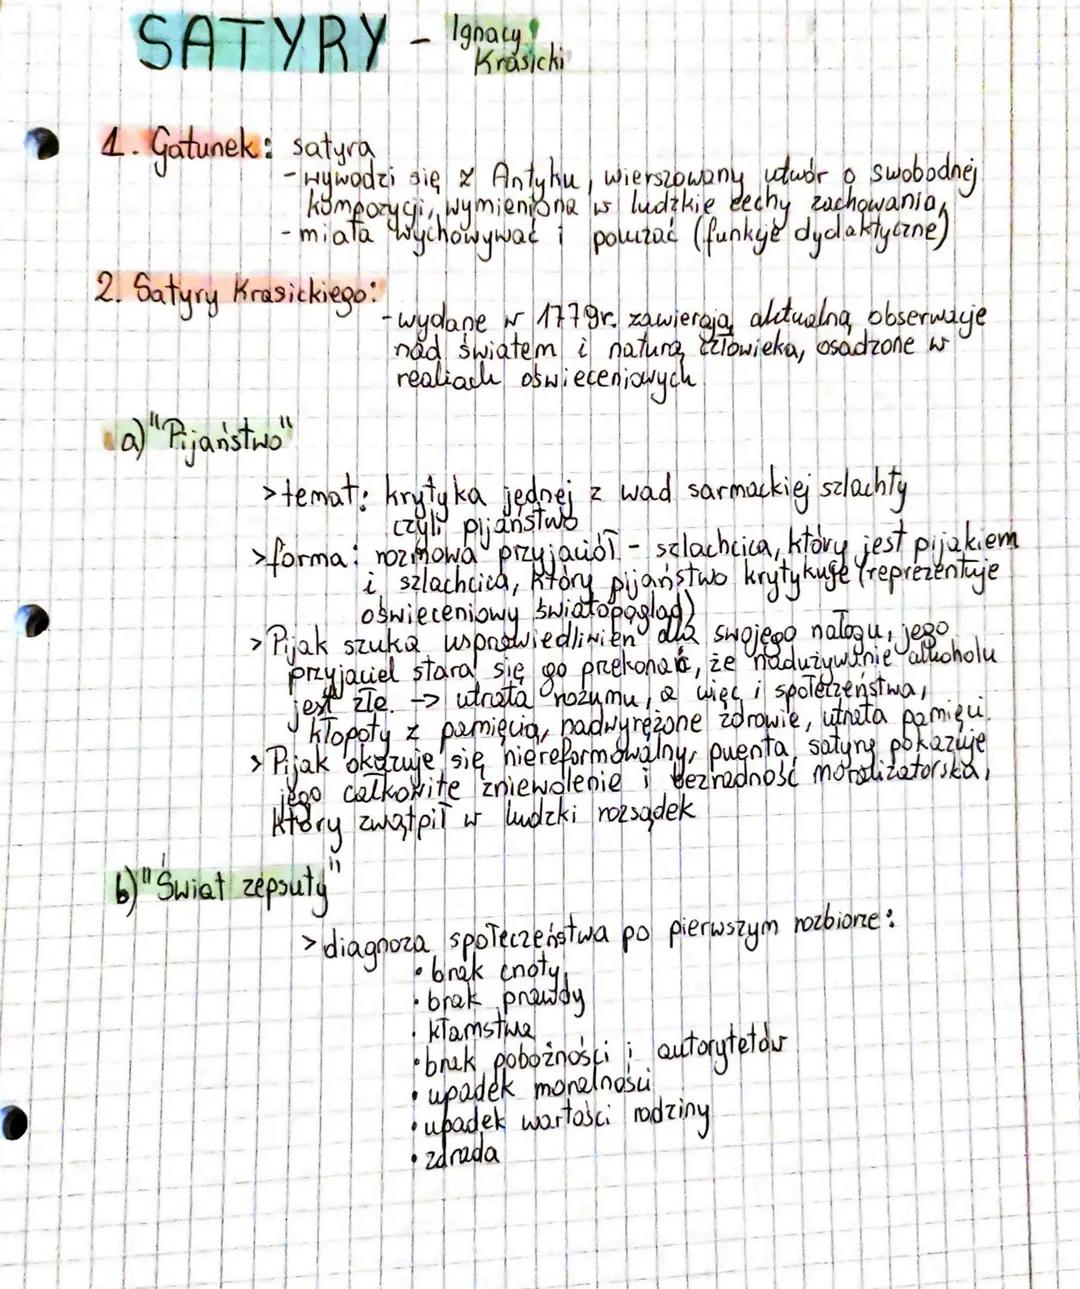 SATYRY - Ignacy
Krasicki
1. Gatunek: satyra
- wywodzi się z Antyku, wierszowany utwór o swobodnej
kompozycji, wymierzona w ludzkie cechy zachowania,
- miała wychowywać i pouczać (funkcje dydaktyczne)
2. Satyry Krasickiego:
- wydane w 1779r. zawierają aktualną obserwację
nad światem i naturą człowieka, osadzone w
realiach oświeceniowych
a) "Pijaństwo"
> temat: krytyka jednej z wad sarmackiej szlachty
czyli pijaństwo
> forma: rozmowa przyjaciół - szlachcica, który jest pijakiem
i szlachcica, który pijaństwo krytykuje (reprezentuje
oświeceniowy światopogląd)
> Pijak szuka usprawiedliwień dla swojego nałogu, jego
przyjaciel stara się go przekonać, że nadużywanie alkoholu
jest złe. -> utrata rozumu, a więc i społeczeństwa,
kłopoty z pamięcią, nadwyrężone zdrowie, utrata pamięci.
> Pijak okazuje się niereformowalny, puenta satyry pokazuje
jego całkowite zniewolenie i bezradność moralizatorska,
który zwątpił w ludzki rozsądek
b) "Świat zepsuty"
> diagnoza społeczeństwa po pierwszym rozbiorze:
• brak cnoty,
• brak prawdy
• kłamstwa
• brak pobożności i autorytetów
• upadek moralności
• upadek wartości rodziny
• zdrada